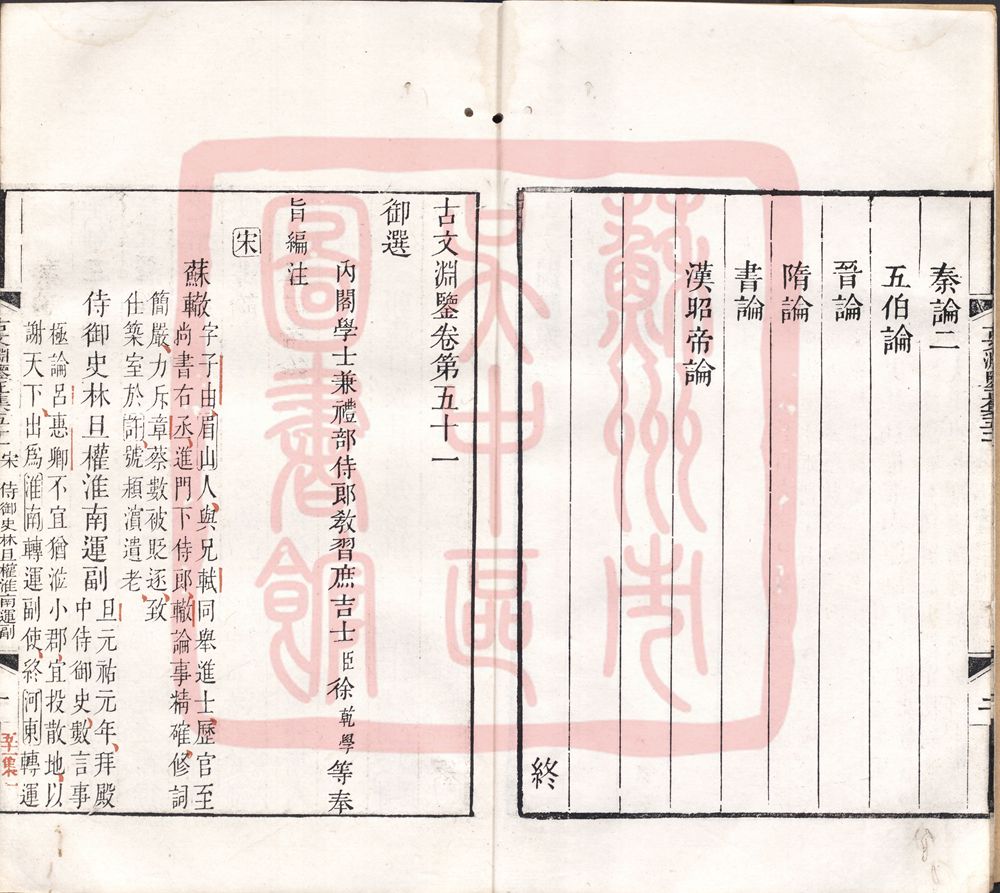 秦論二
五伯論
晉論
隋論
書論
漢昭帝論
終
二
古文淵鑒卷第五十一
御選
內閣學士兼禮部侍郎教習庶吉士臣徐乾學等奉
旨編注
宋
蘇轍字子由眉山人與兄軾同舉進士歷官至
尚書右丞進門下侍郎轍論事精確修詞
簡嚴力斥章蔡數被貶逐致
仕築室於許號潁濱遺老
侍御史林旦權淮南運副旦元祐元年拜殿
中侍御史數言事
極論呂惠卿不宜猶涖小郡宜投散地以
謝天下出爲淮南轉運副使終河東轉運
宋 侍御史林旦權淮南運副
一
五十一集
蘇州市
吳中區
圖書館